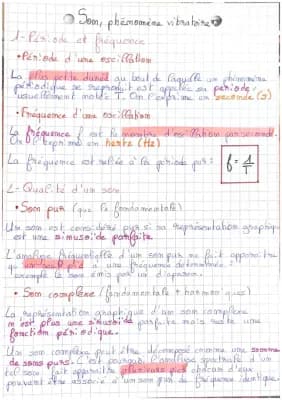 Son, phénomène vibratoire
1- Période et fréquence
• Période d'une oscillation
La plus petite durée au bout de laquelle un phénomène
périodique se reproduit est appelée sa période,
usuellement notée T. On l'exprime en seconde (s)
• Fréquence d'une oscillation
La fréquence f est le nombre d'oscillation par seconde.
On l'exprime en hertz (Hz)
La fréquence est reliée à la période par : f = 1/T
2- Qualité d'un son
• Son pur (que la fondamentale)
Un son est considéré pur si sa représentation graphique
est une sinusoïde parfaite.
L'analyse fréquentielle d'un son pur ne fait apparaître
qu'un seul pic à une fréquence déterminée.
exemple le son émis par un diapason.
• Son complexe (fondamentale + harmoniques)
La représentation graphique d'un son complexe
n'est plus une sinusoïde parfaite mais reste une
fonction périodique.
Un son complexe peut être décomposé comme une somme
de sons purs. C'est pourquoi l'analyse spectrale d'un
tel son fait apparaître plusieurs pics chacun d'eux
pouvant être associé à un son pur de fréquence identique.